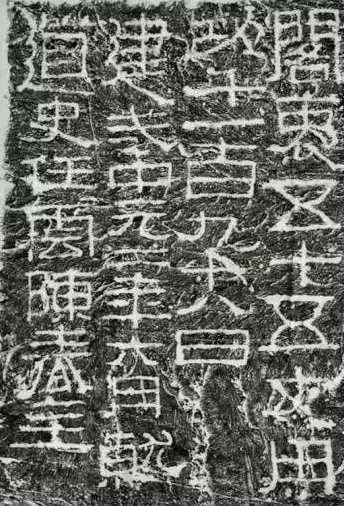 閣袤五十五丈用
功千一百九十八日
建武中元二年六月就
道史任雲陳春主